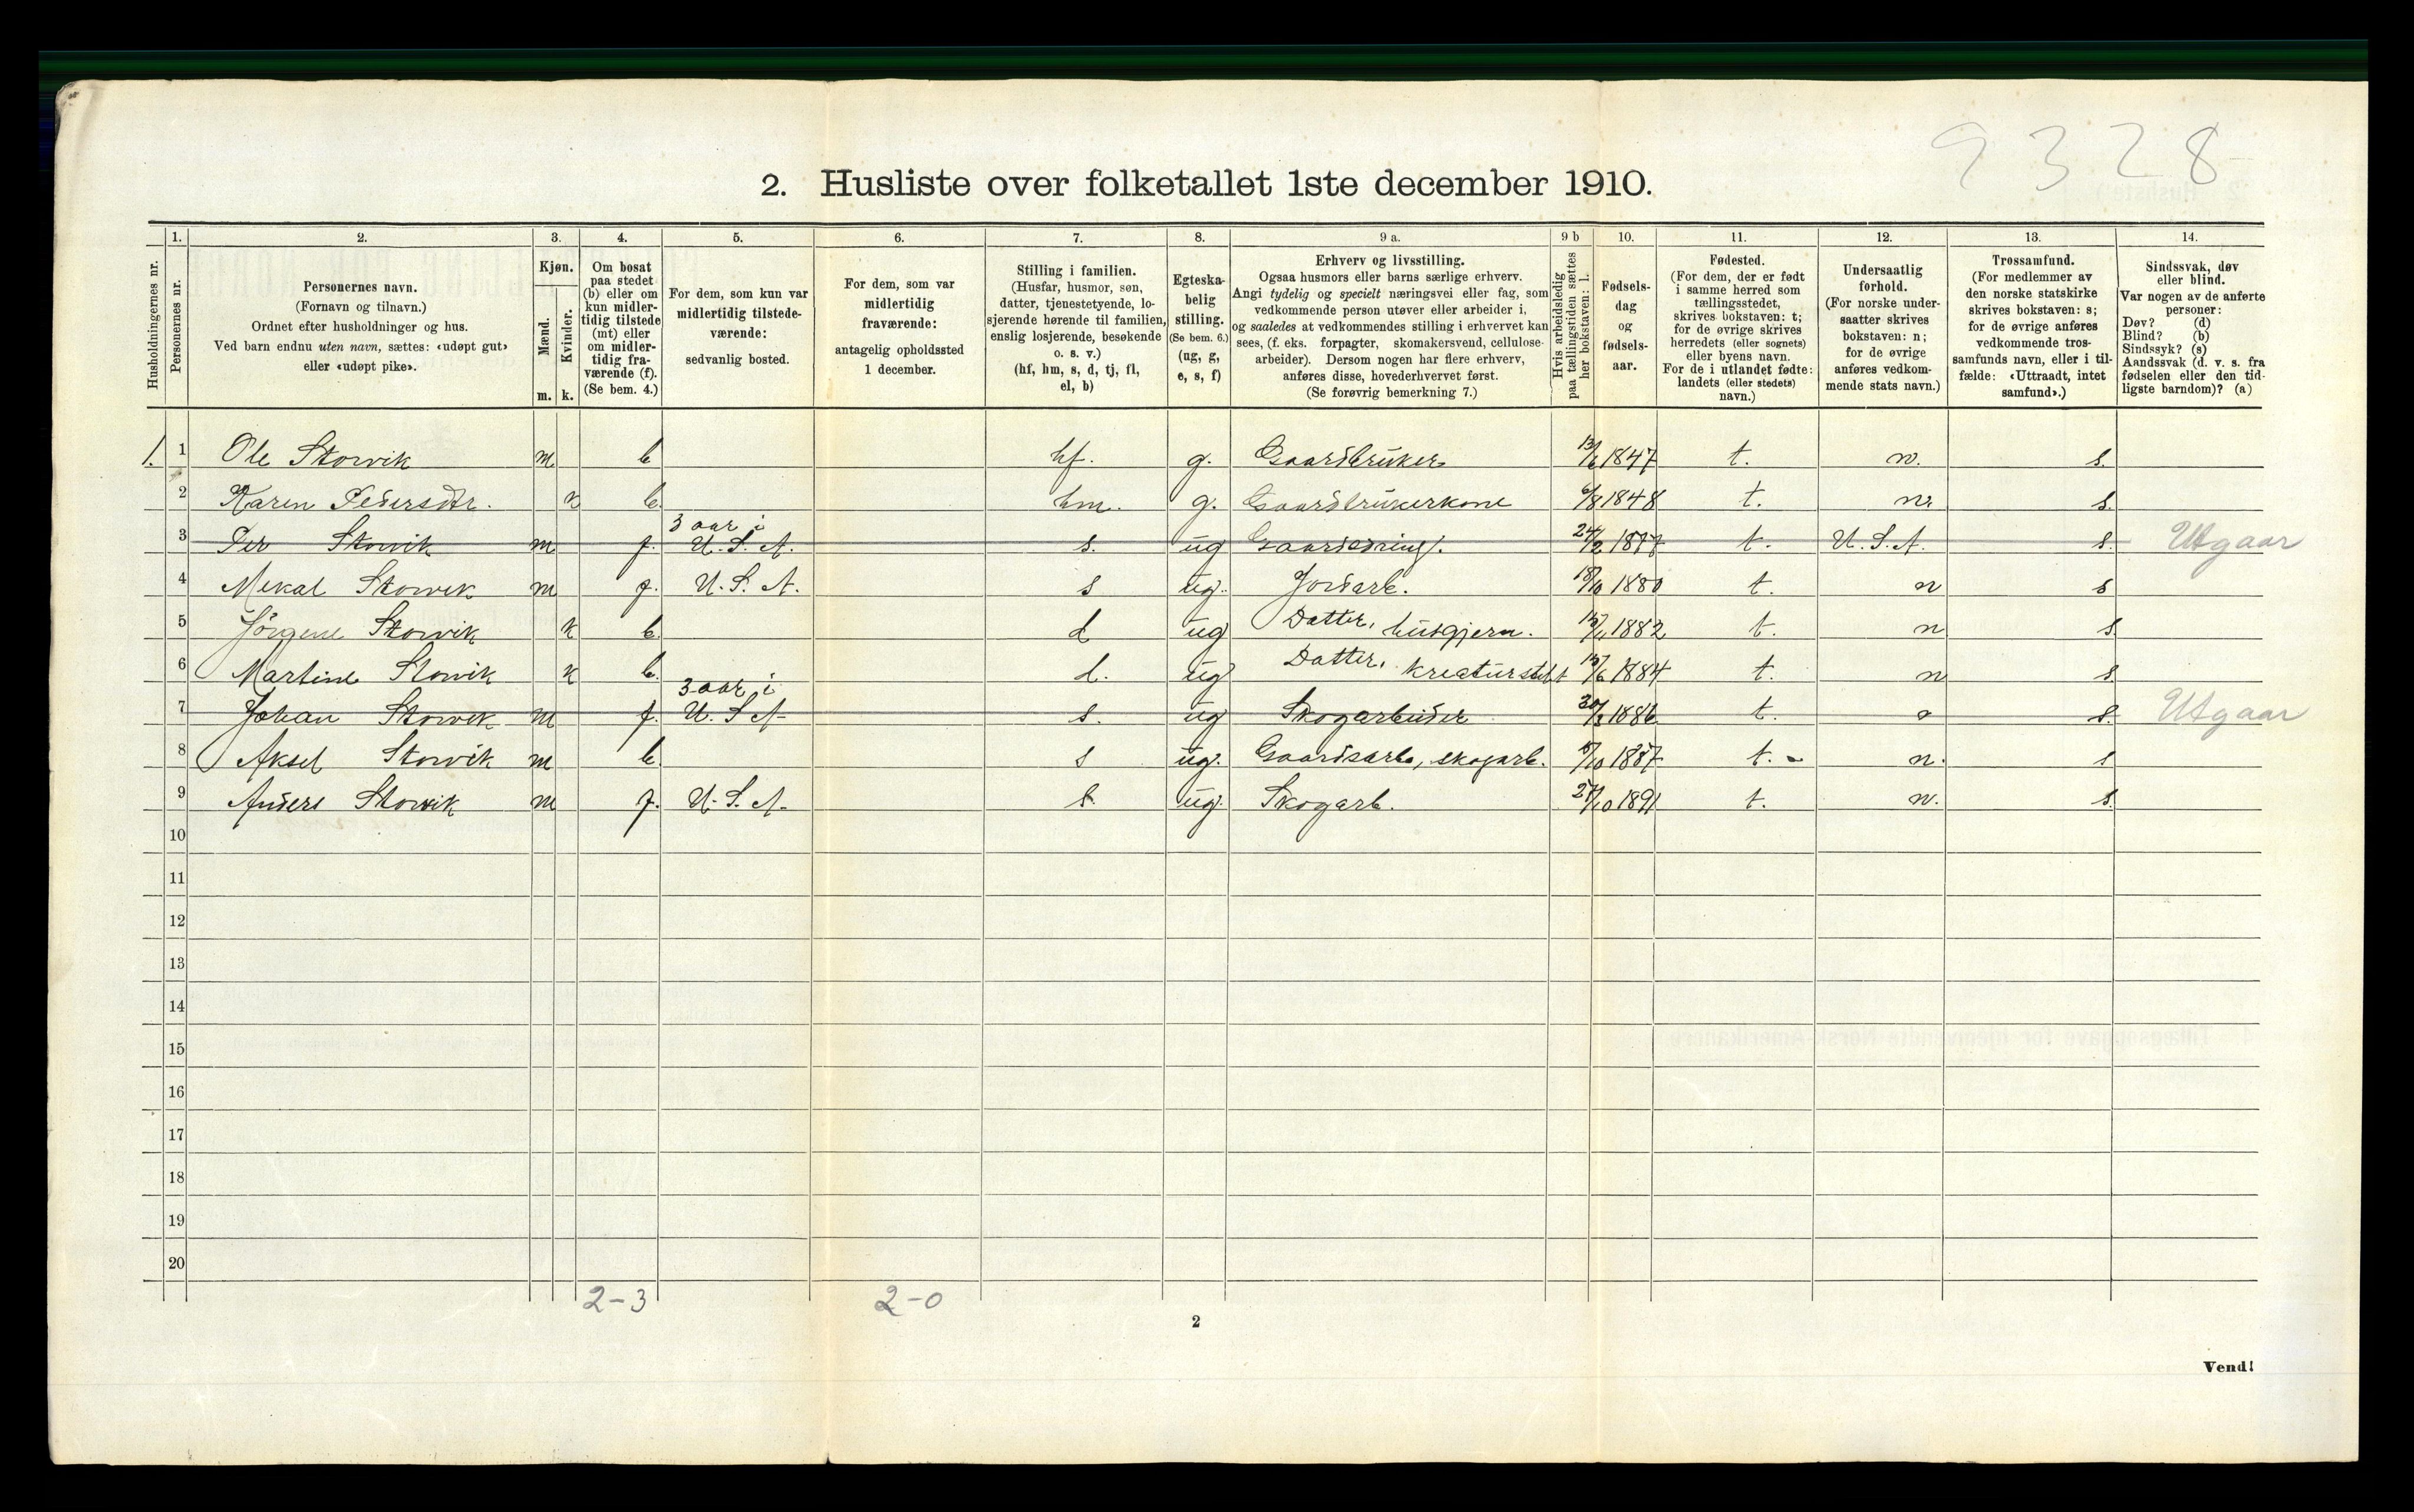 9328
2. Husliste over folketallet 1ste december 1910.
1. 2. 3. 4. 5. 6. 7. 8. 9 a. 9 b 10. 11. 12. 13. 14.
Husholdningernes nr.
Personernes nr.
Personernes navn.
(Fornavn og tilnavn.)
Ordnet efter husholdninger og hus.
Ved barn endnu uten navn, sættes: «udøpt gut»
eller «udøpt pike».
Kjøn.
Mænd.
Kvinder.
m. k.
Om bosat
paa stedet
(b) eller om
kun midler-
tidig tilstede
(mt) eller
om midler-
tidig fra-
værende (f).
(Se bem. 4.)
For dem, som kun var
midlertidig tilstede-
værende:
sedvanlig bosted.
For dem, som var
midlertidig
fraværende:
antagelig opholdssted
1 december.
Stilling i familien.
(Husfar, husmor, søn,
datter, tjenestetyende, lo-
sjerende hørende til familien,
enslig losjerende, besøkende
o. s. v.)
(hf, hm, s, d, tj, fl,
el, b)
Egteska-
belig
stilling.
(Se bem. 6.)
(ug, g,
e, s, f)
Erhverv og livsstilling.
Ogsaa husmors eller barns særlige erhverv.
Angi tydelig og specielt næringsvei eller fag, som
vedkommende person utøver eller arbeider i,
og saaledes at vedkommendes stilling i erhvervet kan
sees, (f. eks. forpagter, skomakersvend, cellulose-
arbeider). Dersom nogen har flere erhverv,
anføres disse, hovederhvervet først.
(Se forøvrig bemerkning 7.)
Hvis arbeidsledig
paa tællingstiden sættes
her bokstaven: l.
Fødsels-
dag
og
fødsels-
aar.
Fødested.
(For dem, der er født
i samme herred som
tællingsstedet,
skrives bokstaven: t;
for de øvrige skrives
herredets (eller sognets)
eller byens navn.
For de i utlandet fødte:
landets (eller stedets)
navn.)
Undersaatlig
forhold.
(For norske under-
saatter skrives
bokstaven: n;
for de øvrige
anføres vedkom-
mende stats navn.)
Trossamfund.
(For medlemmer av
den norske statskirke
skrives bokstaven: s;
for de øvrige anføres
vedkommende tros-
samfunds navn, eller i til-
fælde: «Uttraadt, intet
samfund».)
Sindssvak, døv
eller blind.
Var nogen av de anførte
personer:
Døv? (d)
Blind? (b)
Sindssyk? (s)
Aandssvak (d. v. s. fra
fødselen eller den tid-
ligste barndom)? (a)
1. 1 Ole Storvik m b hf. g. Gaardbruker 13/6 1847 t. n. s.
2 Karen Pedersdtr. k b hm. g. Gaardbrukerkone 6/8 1848 t. n. s.
3 Per Storvik m f. 3 aar i U.S.A. s. ug 24/2 1877 t. U.S.A. s. Utgaar
4 Mekal Storvik m f. U.S.A. s ug. Jordarb. 18/10 1880 t. n s
5 Jørgene Storvik k b d ug Datter, husgjern. 1882 t. n s.
6 Martine Storvik k b d. ug Datter, kreaturstelt 15/6 1884 t. n s.
7 Johan Storvik m f. 3 aar i U.S.A s. ug Skogarbeider 1886 t. s. Utgaar
8 Aksel Storvik m b s ug. Gaardsarb, skogarb. 1887 t. n. s
9 Anders Storvik m f. U.S.A s. ug. Skogarb. 1891 t. n. s.
10
11
12
13
14
15
16
17
18
19
20
2-3 2-0
2
Vend!